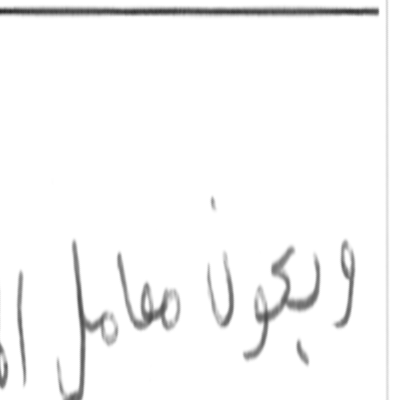 ويكون معامل